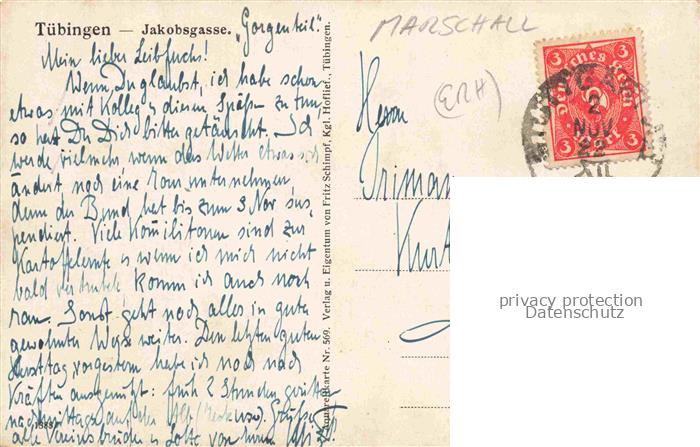 Tübingen — Jakobsgasse. „Gorgenteil“.
Mein lieber Leibfuchs!
Wenn Du glaubst, ich habe schon
etwas mit Kolleg u diesen Späßen zu tun,
so hast Du Dich bitter getäuscht. Ich
werde vielmehr wenn das Wetter etwas sich
ändert noch eine Tour unternehmen,
denn der Bund hat bis zum 3 Nov sus-
pendiert. Viele Kom̄ilitonen sind zur
Kartoffelernte u wenn ich mich nicht
bald komm ich auch noch
Sonst geht noch alles in guter
gewohnter Weise weiter. Den letzten guten
Herbsttag vorgestern habe ich noch nach
Kräften ausgenützt: früh 2 Stunden
nachmittags auf der
alle Vereinsbrüder u Lotte von
1388
Aquarellkarte Nr. 509. Verlag u. Eigentum von Fritz Schimpf, Kgl. Hoflief., Tübingen.
MARSCHALL
(ERH)
3 3
Deutsches Reich
3
3 Mark 3
2
NOV
22
Herrn
Kurt
privacy protection
Datenschutz